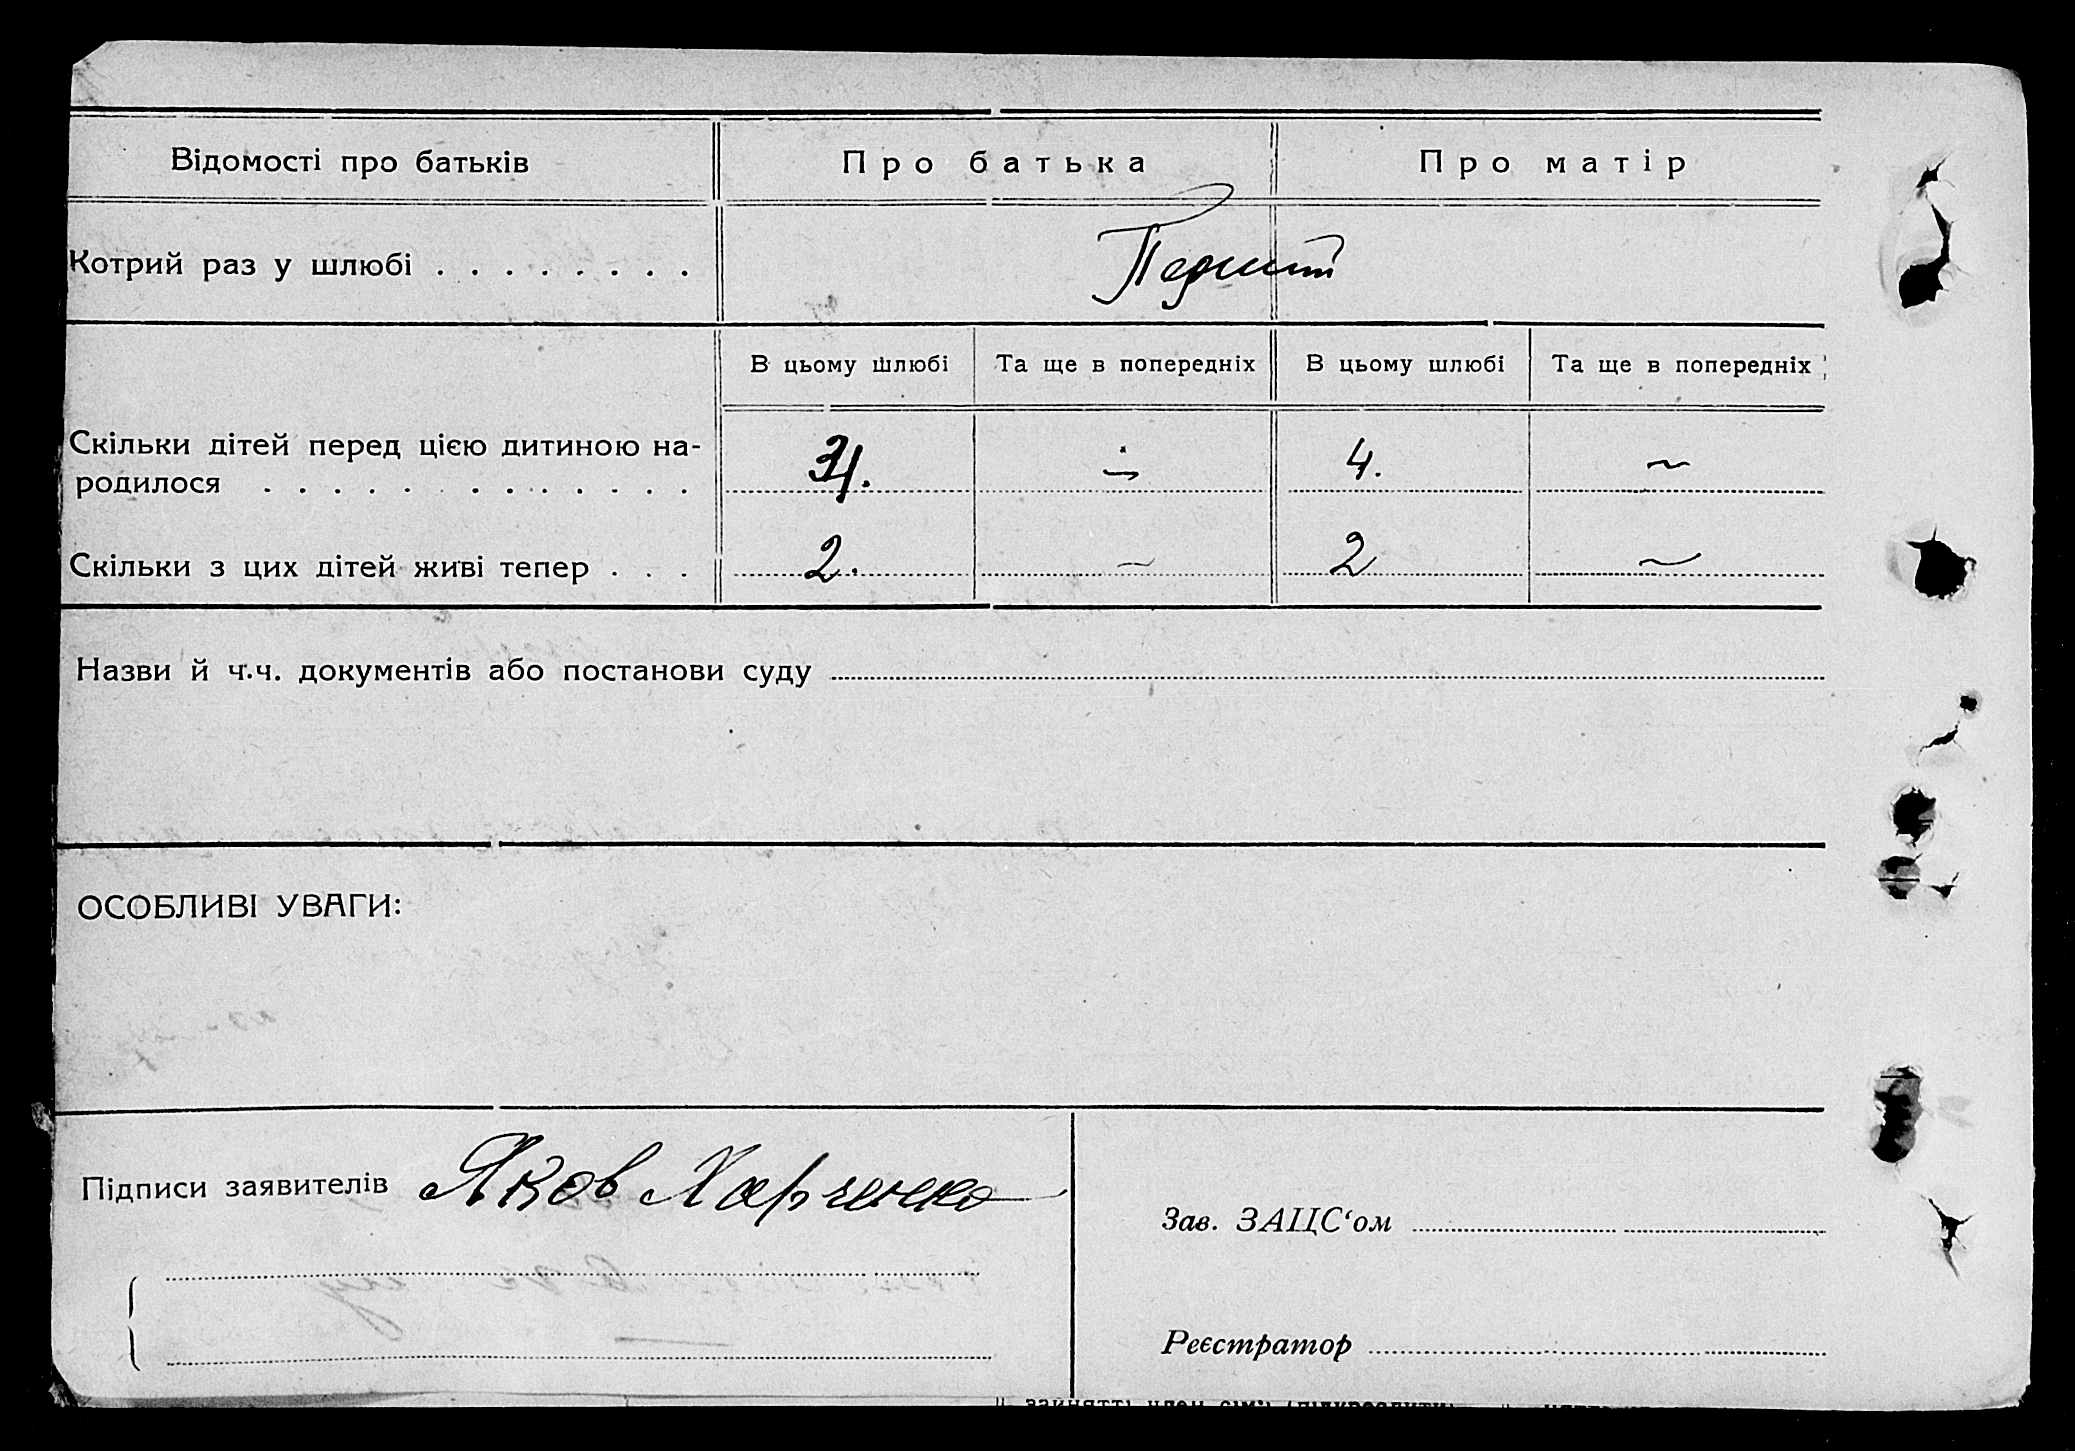 Відомості про батьків Про батька Про матір
Котрий раз у шлюбі . . . . . . . . Перший
В цьому шлюбі Та ще в попередніх В цьому шлюбі Та ще в попередніх
Скільки дітей перед цією дитиною на-
родилося . . . . . . . . . . . . 4. — 4. ~
Скільки з цих дітей живі тепер . . . 2. — 2 ~
Назви й ч.ч. документів або постанови суду
ОСОБЛИВІ УВАГИ:
Підписи заявителів Яков Харченко
Зав. ЗАЦС‘ом
Реєстратор